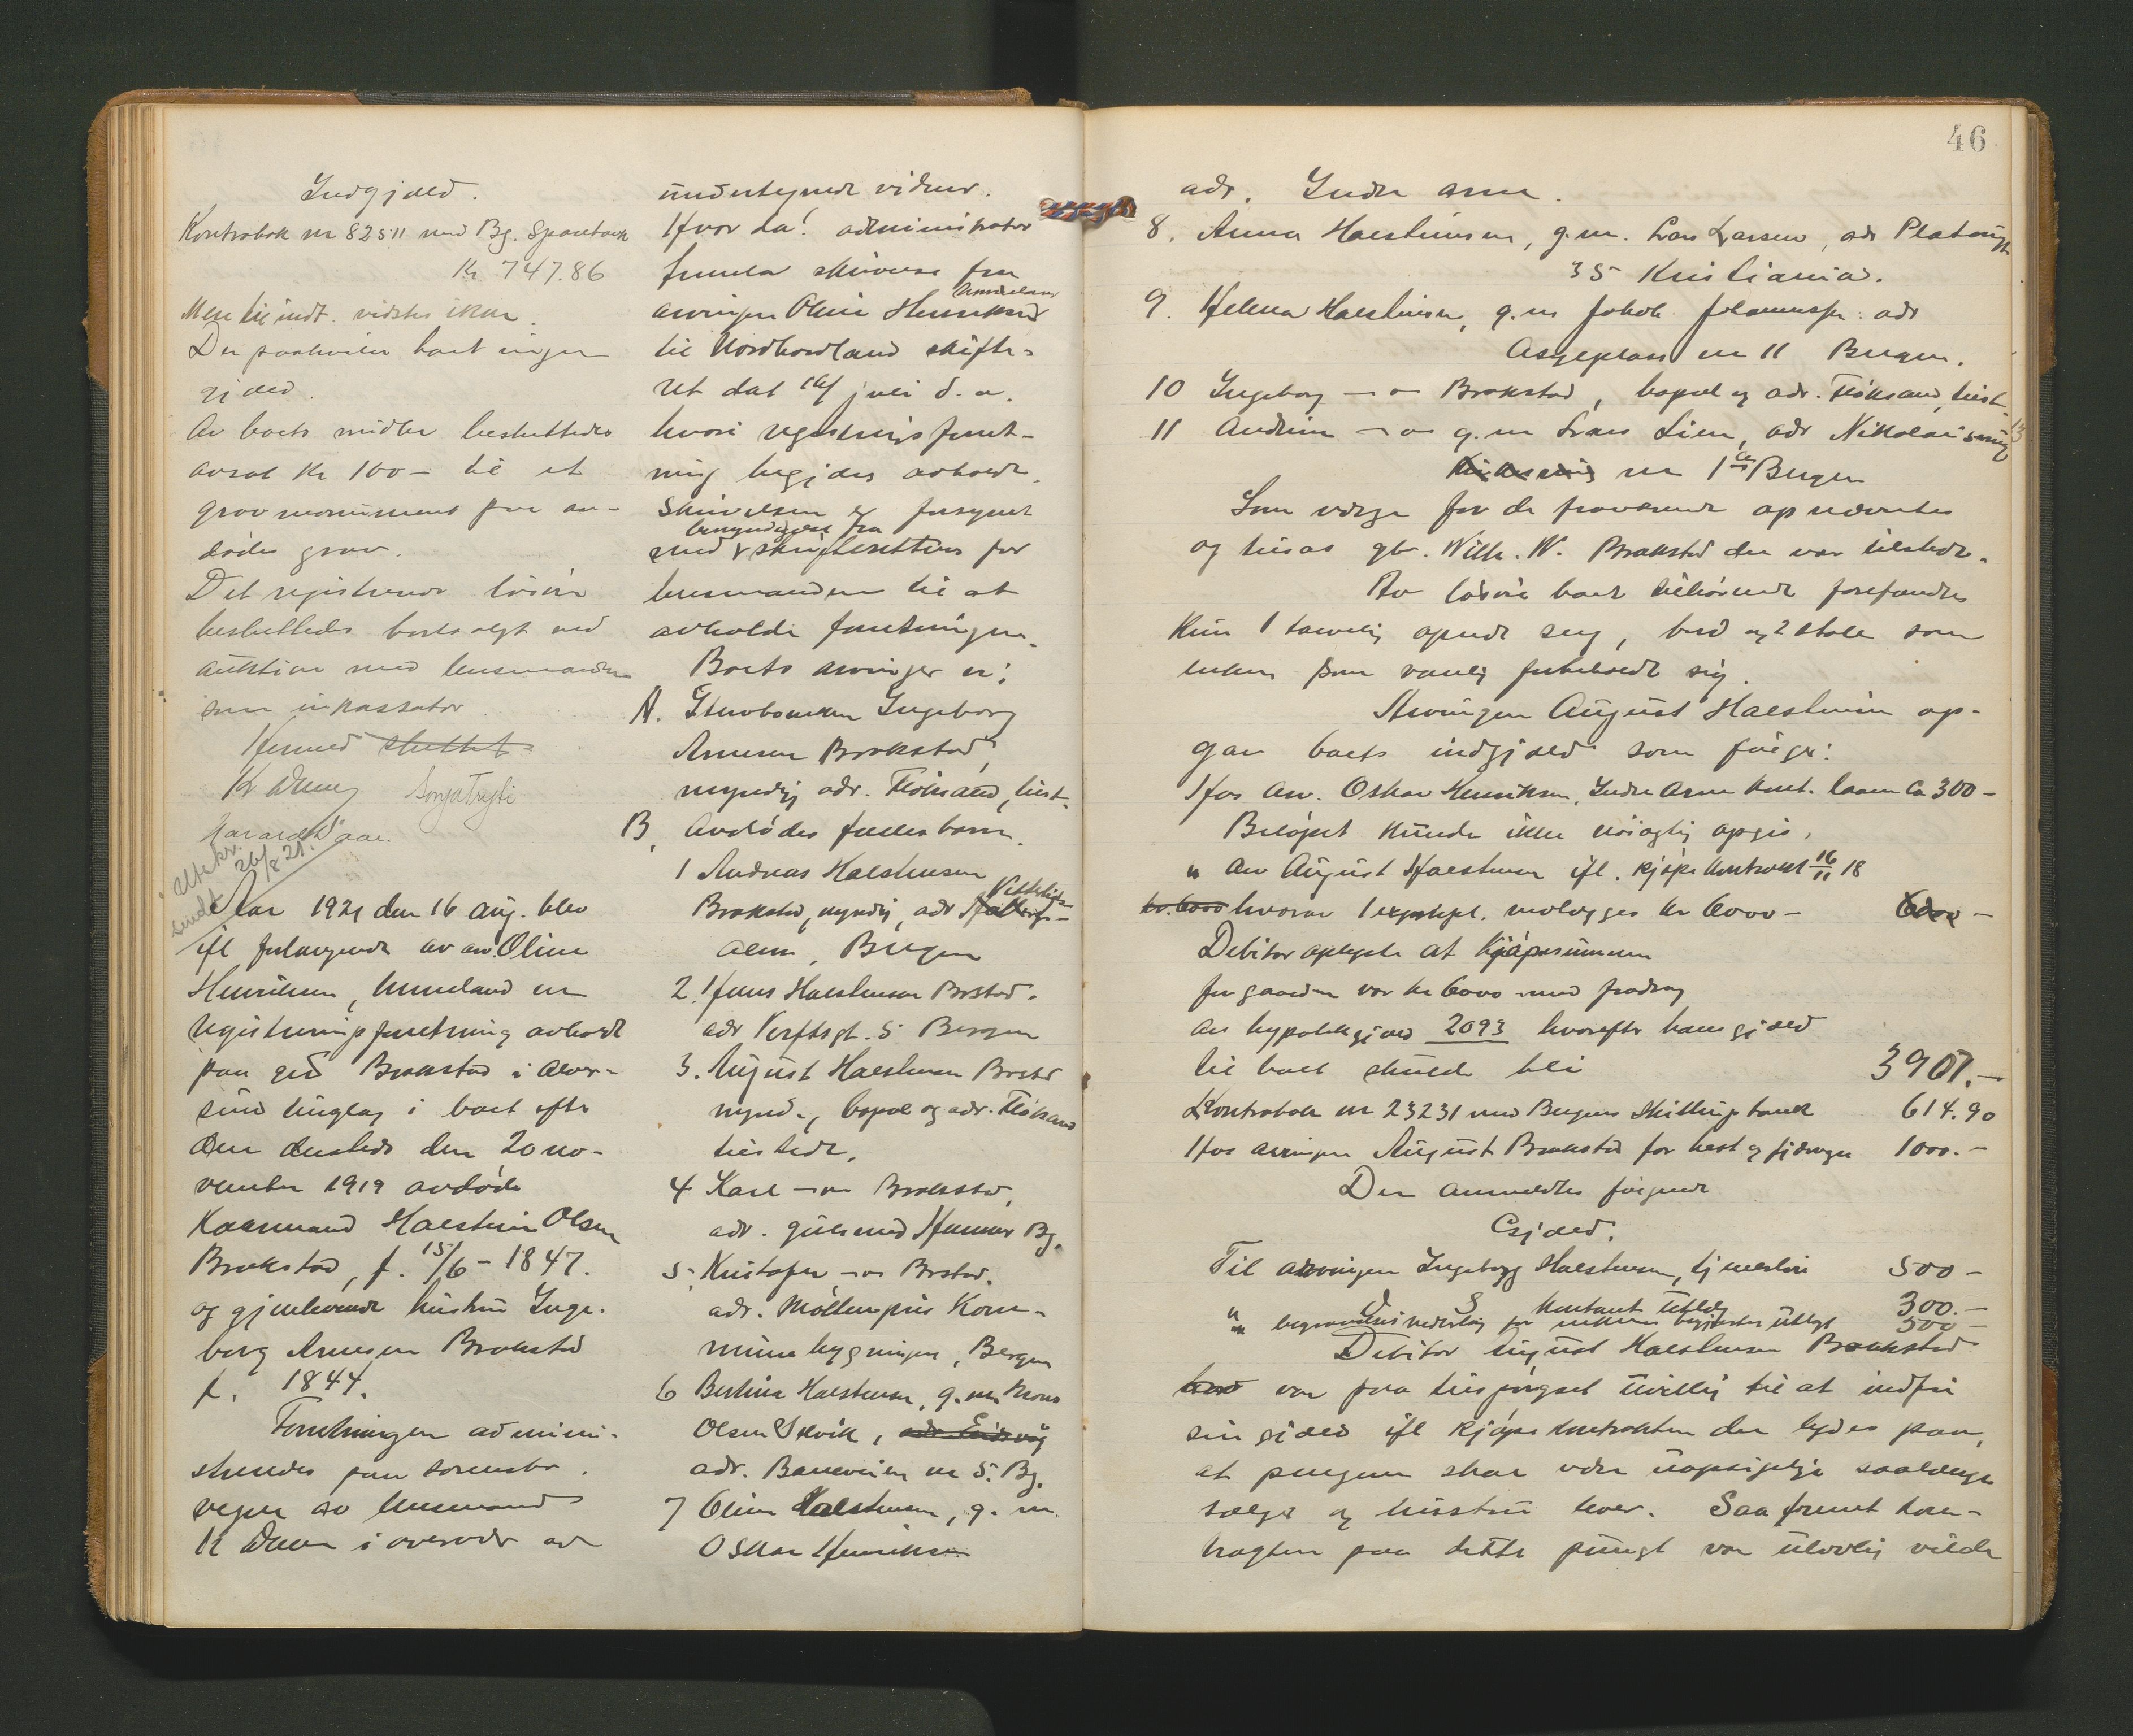 Indgjæld.
Kontrabok nr 82511 med Bg. Sparebank
Kr 747.86
Mere til indt. vidstes ikke.
Der paahviler boet ingen
gjæld.
Av boets midler besluttedes
avsat Kr 100 – til et
gravmonument paa av-
dødes grav.
Det registrerede løsøre
besluttedes bortsolgt ved
auktion med lensmanden
som inkassator.
Hermed sluttet.
K Daae Sonja Trygti
Harald Daae.
Utskr.
sendt 26/8 21.
Aar 1921 den 16 aug. blev
ifl forlangende av arv. Oline
Henriksen, Unneland en
registreringsforretning avholdt
paa grd Brakstad i Alver-
sund tinglag i boet efter
den dersteds den 20 no-
vember 1919 avdøde
Kaarmand Halstein Olsen
Brakstad, f. 15/6 – 1847.
og gjenlevende hustru Inge-
borg Arnesen Brakstad
f. 1844.
Forretningen admini-
streredes paa sorenskr.
vegne av lensmand
K Daae i overvær av
undertegnede vidner.
Hvor da! administrator
fremla skrivelse fra
arvingen Oline Henriksen
Unneland
til Nordhordland skifte-
ret dat 16/ juli d. a.
hvori registreringsforret-
ning begjæres avholdt.
Skrivelsen er forsynet
bemyndigelse fra
med skifteretten for
lensmanden til at
avholde forretningen.
Boets arvinger er:
A. Sterboenken Ingeborg
Arnesen Brakstad,
myndig adr. Fløksand, tilst.
B. Avdødes fælles barn
1 Andreas Halstensen
Brakstad, myndig, adr
alm, Bergen
2. Hans Halstensen Brstad.
adr Verftsgt. 5 Bergen
3. August Halstensen Brstd
mynd., bopæl og adr. Fløksand
tilstede.
4 Karl –"– Brakstad,
adr. gulsmed Hammer Bg.
5. Kristofer –"– Brstad.
adr. Møllenpris Kom-
munebygningen, Bergen
6 Bertina Halstensen, g. m. Mons
Olsen Elvik, adr. Eidsvåg
adr. Baneveien nr 5. Bg.
7 Oline Halstensen, g. m.
Oskar Henriksen
46
adr. Indre Arne.
8. Anna Halsteinsen, g. m. Lars Larsen, adr Platousgt
35 Kristiania.
9. Helena Halsteinsen, g. m Jakob Johannessen adr
nr 11 Bergen.
10 Ingeborg –"– Brakstad, bopæl og adr. Fløksand, tilst.
11 Andrine –"– g. m Lars Lien, adr Nikolaismug 13
nr 1 Bergen
Som værge for de fraværende opnævntes
og tilsas gbr. Wilh. W. Brakstad der var tilstede.
Av løsøre boet tilhørende forefandtes
Kun 1 tarvelig opredt seng, bord og 2 stole som
enken som vanlig forbeholdt sig.
Arvingen August Halstensen op-
gav boets indgjæld som følger:
Hos arv. Oskar Henriksen, Indre Arne kont. laan Ca 300 –
Beløpet kunde ikke nøiagtig opgis.
" arv August Halstensen ifl. kjøpekontrakt 16/11 18
kr. 6000 hvorav 1 expl. vedlægges kr 6000 – 6000 –
Debitor oplyste at Kjøpesummen
for gaarden var kr 6000 med fradrag
av hypotekgjæld 2093 hvorefter hans gjæld
til boet skulde bli 3907.–
Kontrabok nr 23231 med Bergens Skillingsbank 614.90
Hos arvingen August Brakstad for hest og fjdvogn 1000.–
Der anmeldtes følgende
Gjæld.
Til arvingen Ingeborg Halstensen, tjenerløn 500 –
" D S kontant utlæg 300.–
" begravelses utlagt 500 –
Debitor August Halstensen Brakstad
var paa tilspørgsel uvillig til at indfri
sin gjæld ifl kjøpekontrakten der lydes paa,
at pengene skal være uopsigelige saalænge
sælger og hustru lever. Saafremt kon-
trakten paa dette punkt var ulovlig vilde